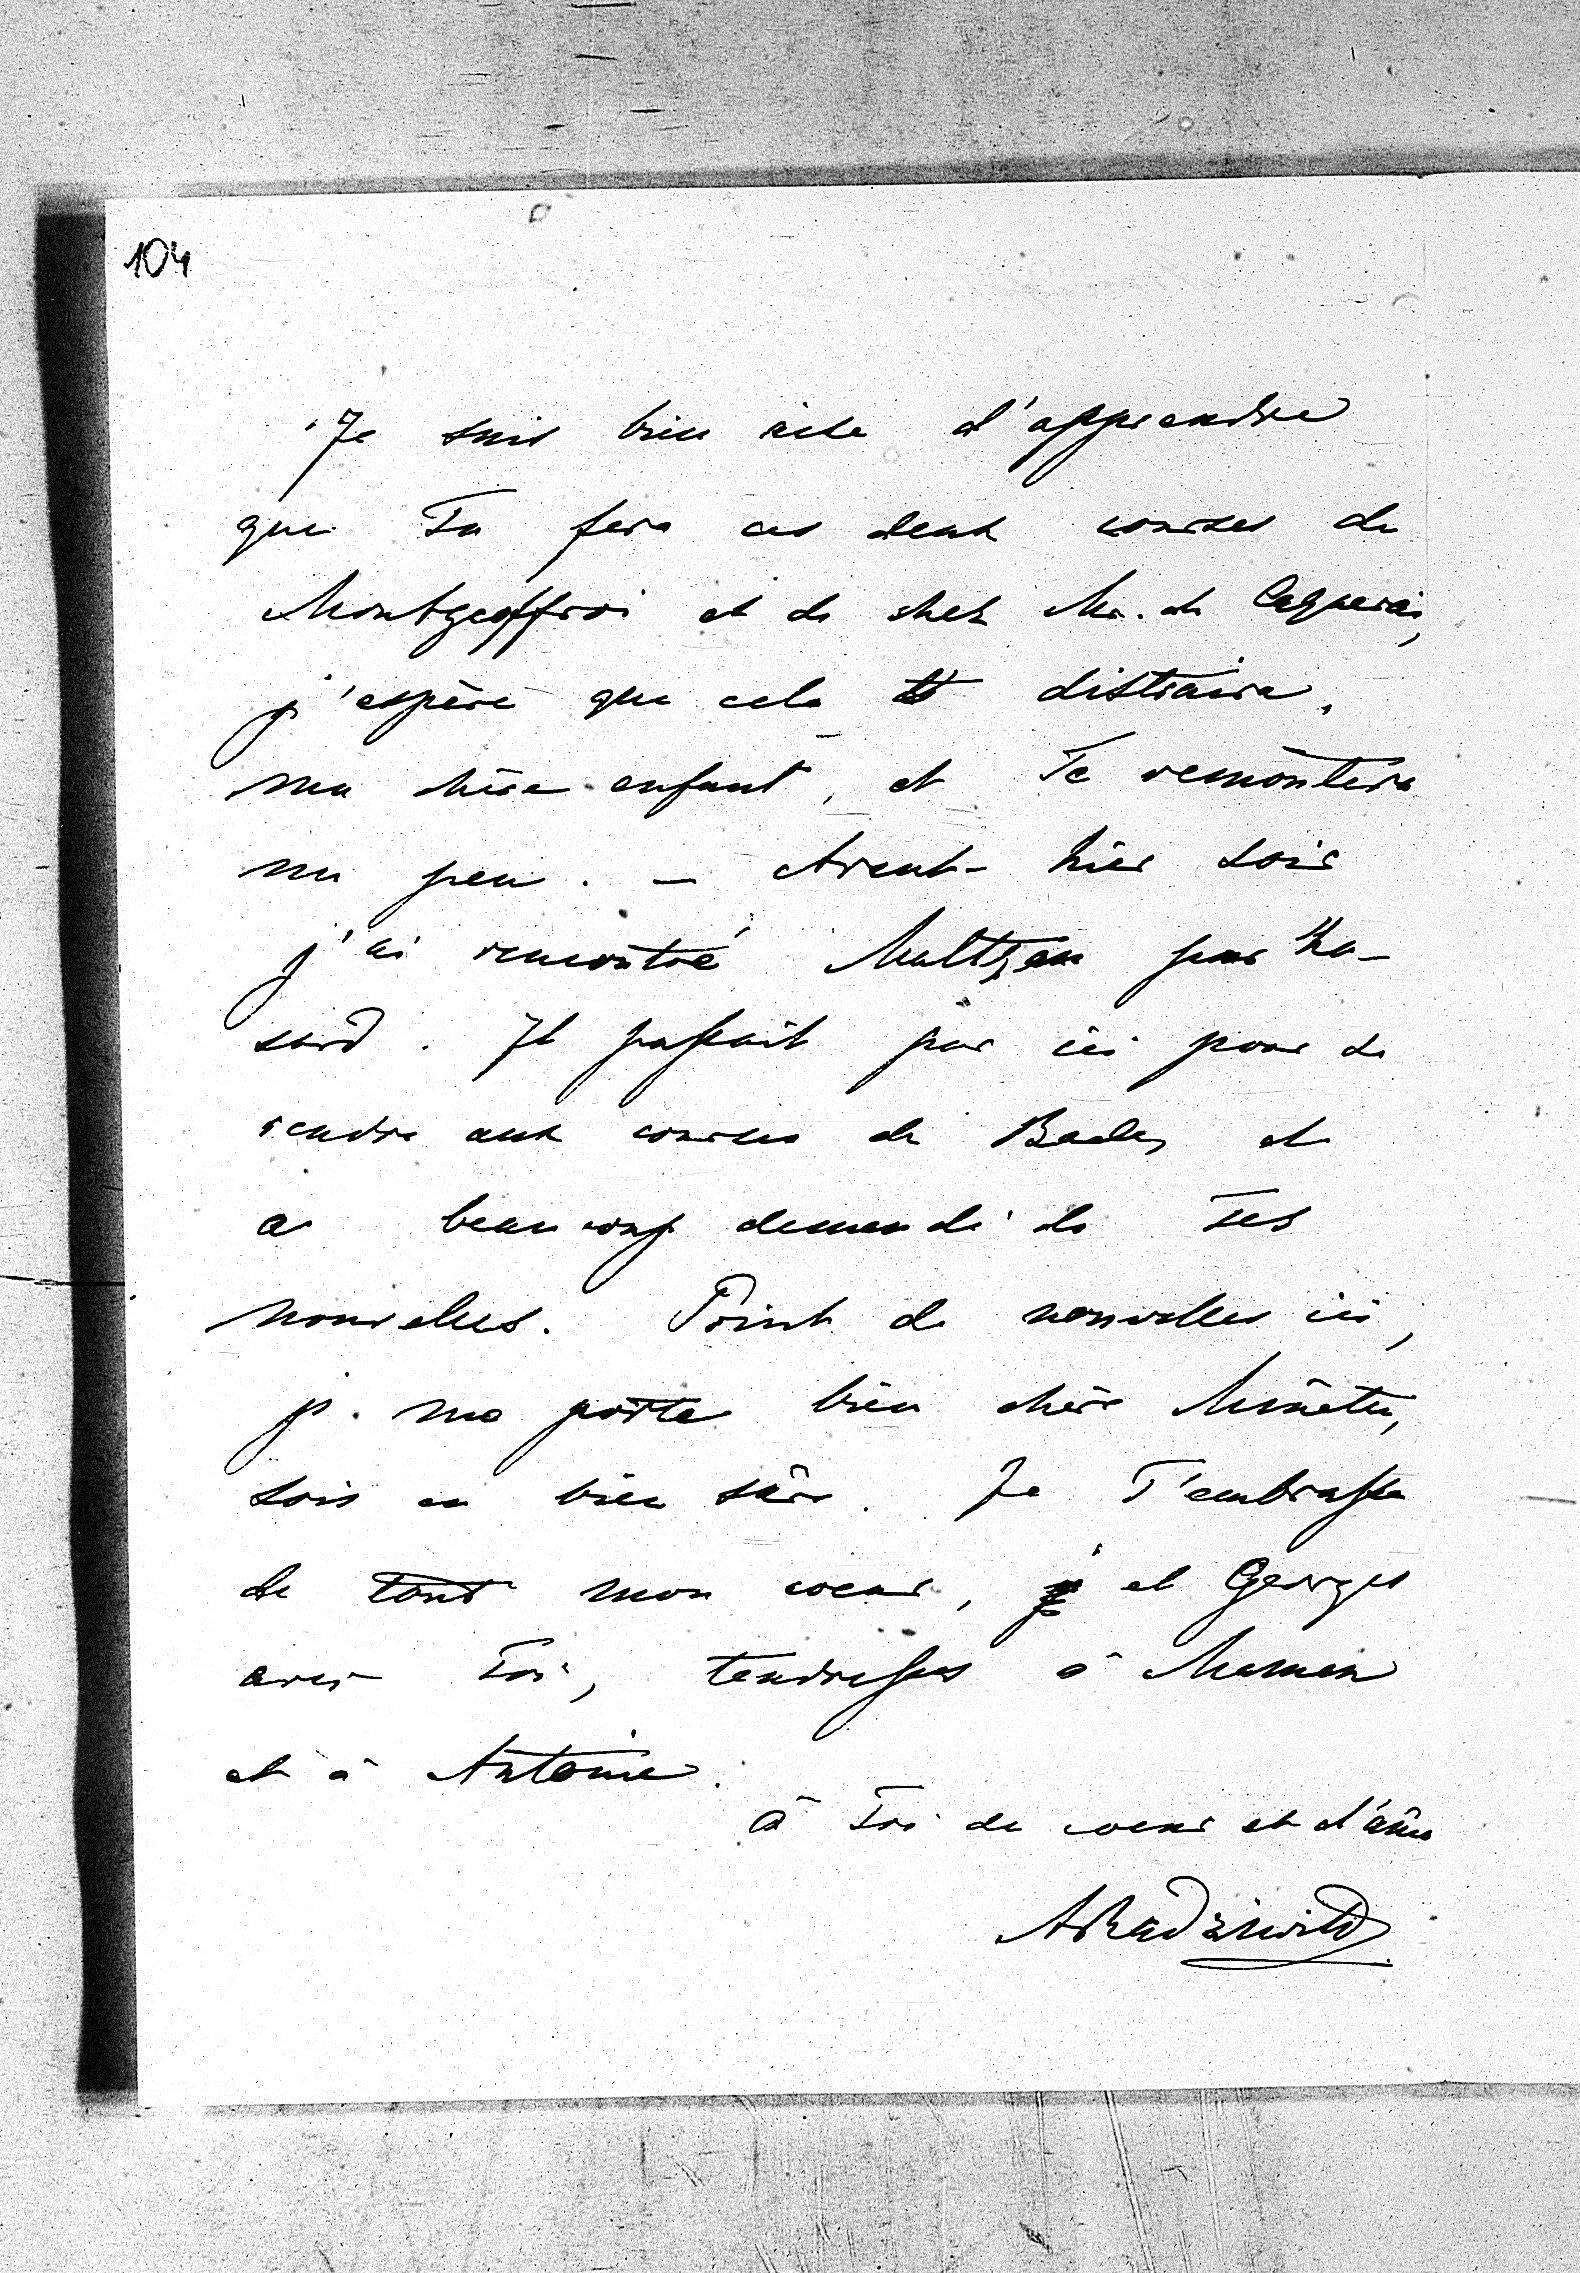 104
Je suis bien aise d'apprendre
que Tu fera ces deux courses de
Montgeoffroi et de chez Mr. de
j'espère que cela Te distraira,
ma chère enfant, et Te remontera
un peu. — Avant-hier soir
j'ai rencontré Maltzan par ha-
sard. Il passait par ici pour se
rendre aux courses de Baden et
a beaucoup demandé de Tes
nouvelles. Point de nouvelles ici,
je me porte bien chère Minette,
sois en bien sûre. Je T'embrasse
de tout mon coeur, et Georges
avec Toi, tendresses à Maman
et à Antoine.
à Toi de coeur et d'âme
ARadziwill